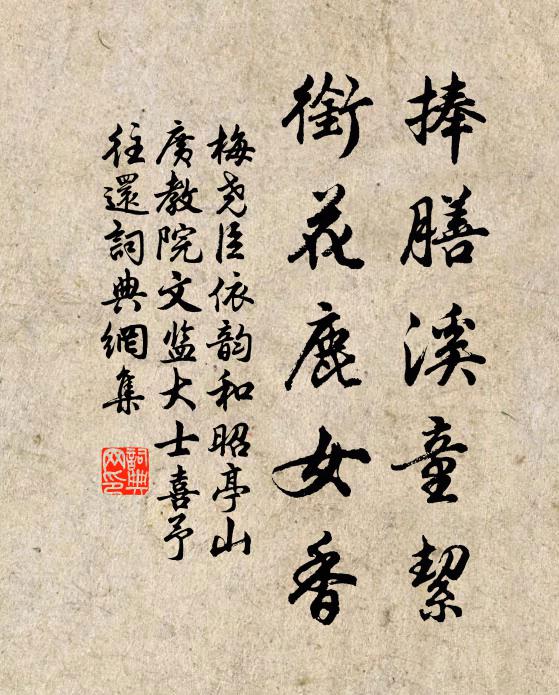 捧膳溪童絜
銜花鹿女香
梅尧臣依韵和昭亭山
广教院文监大士喜予
往還詞典網集
詞典网印